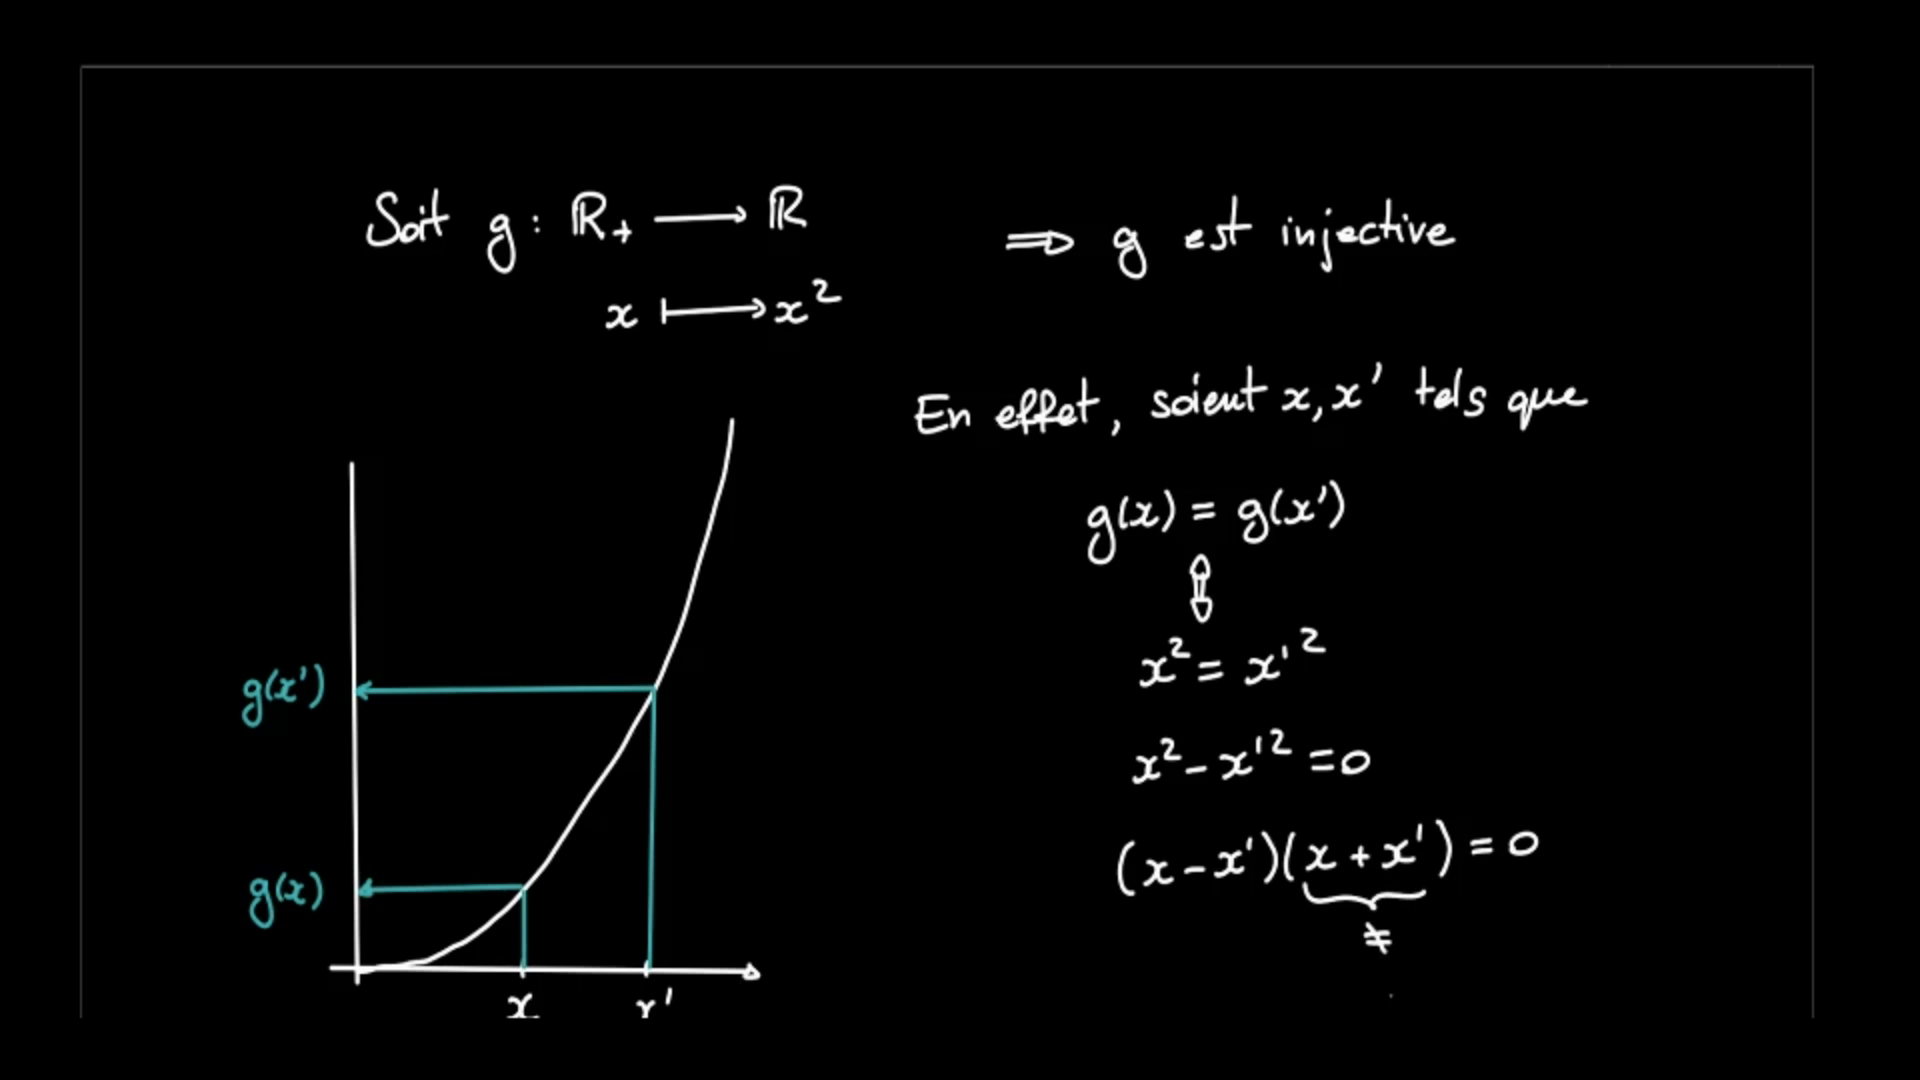 Soit g : ℝ₊ ⟶ ℝ
x ⟼ x²
⇒ g est injective
En effet, soient x, x' tels que
g(x) = g(x')
⇕
x² = x'²
x² - x'² = 0
(x - x')(x + x') = 0
≠
g(x')
g(x)
x x'